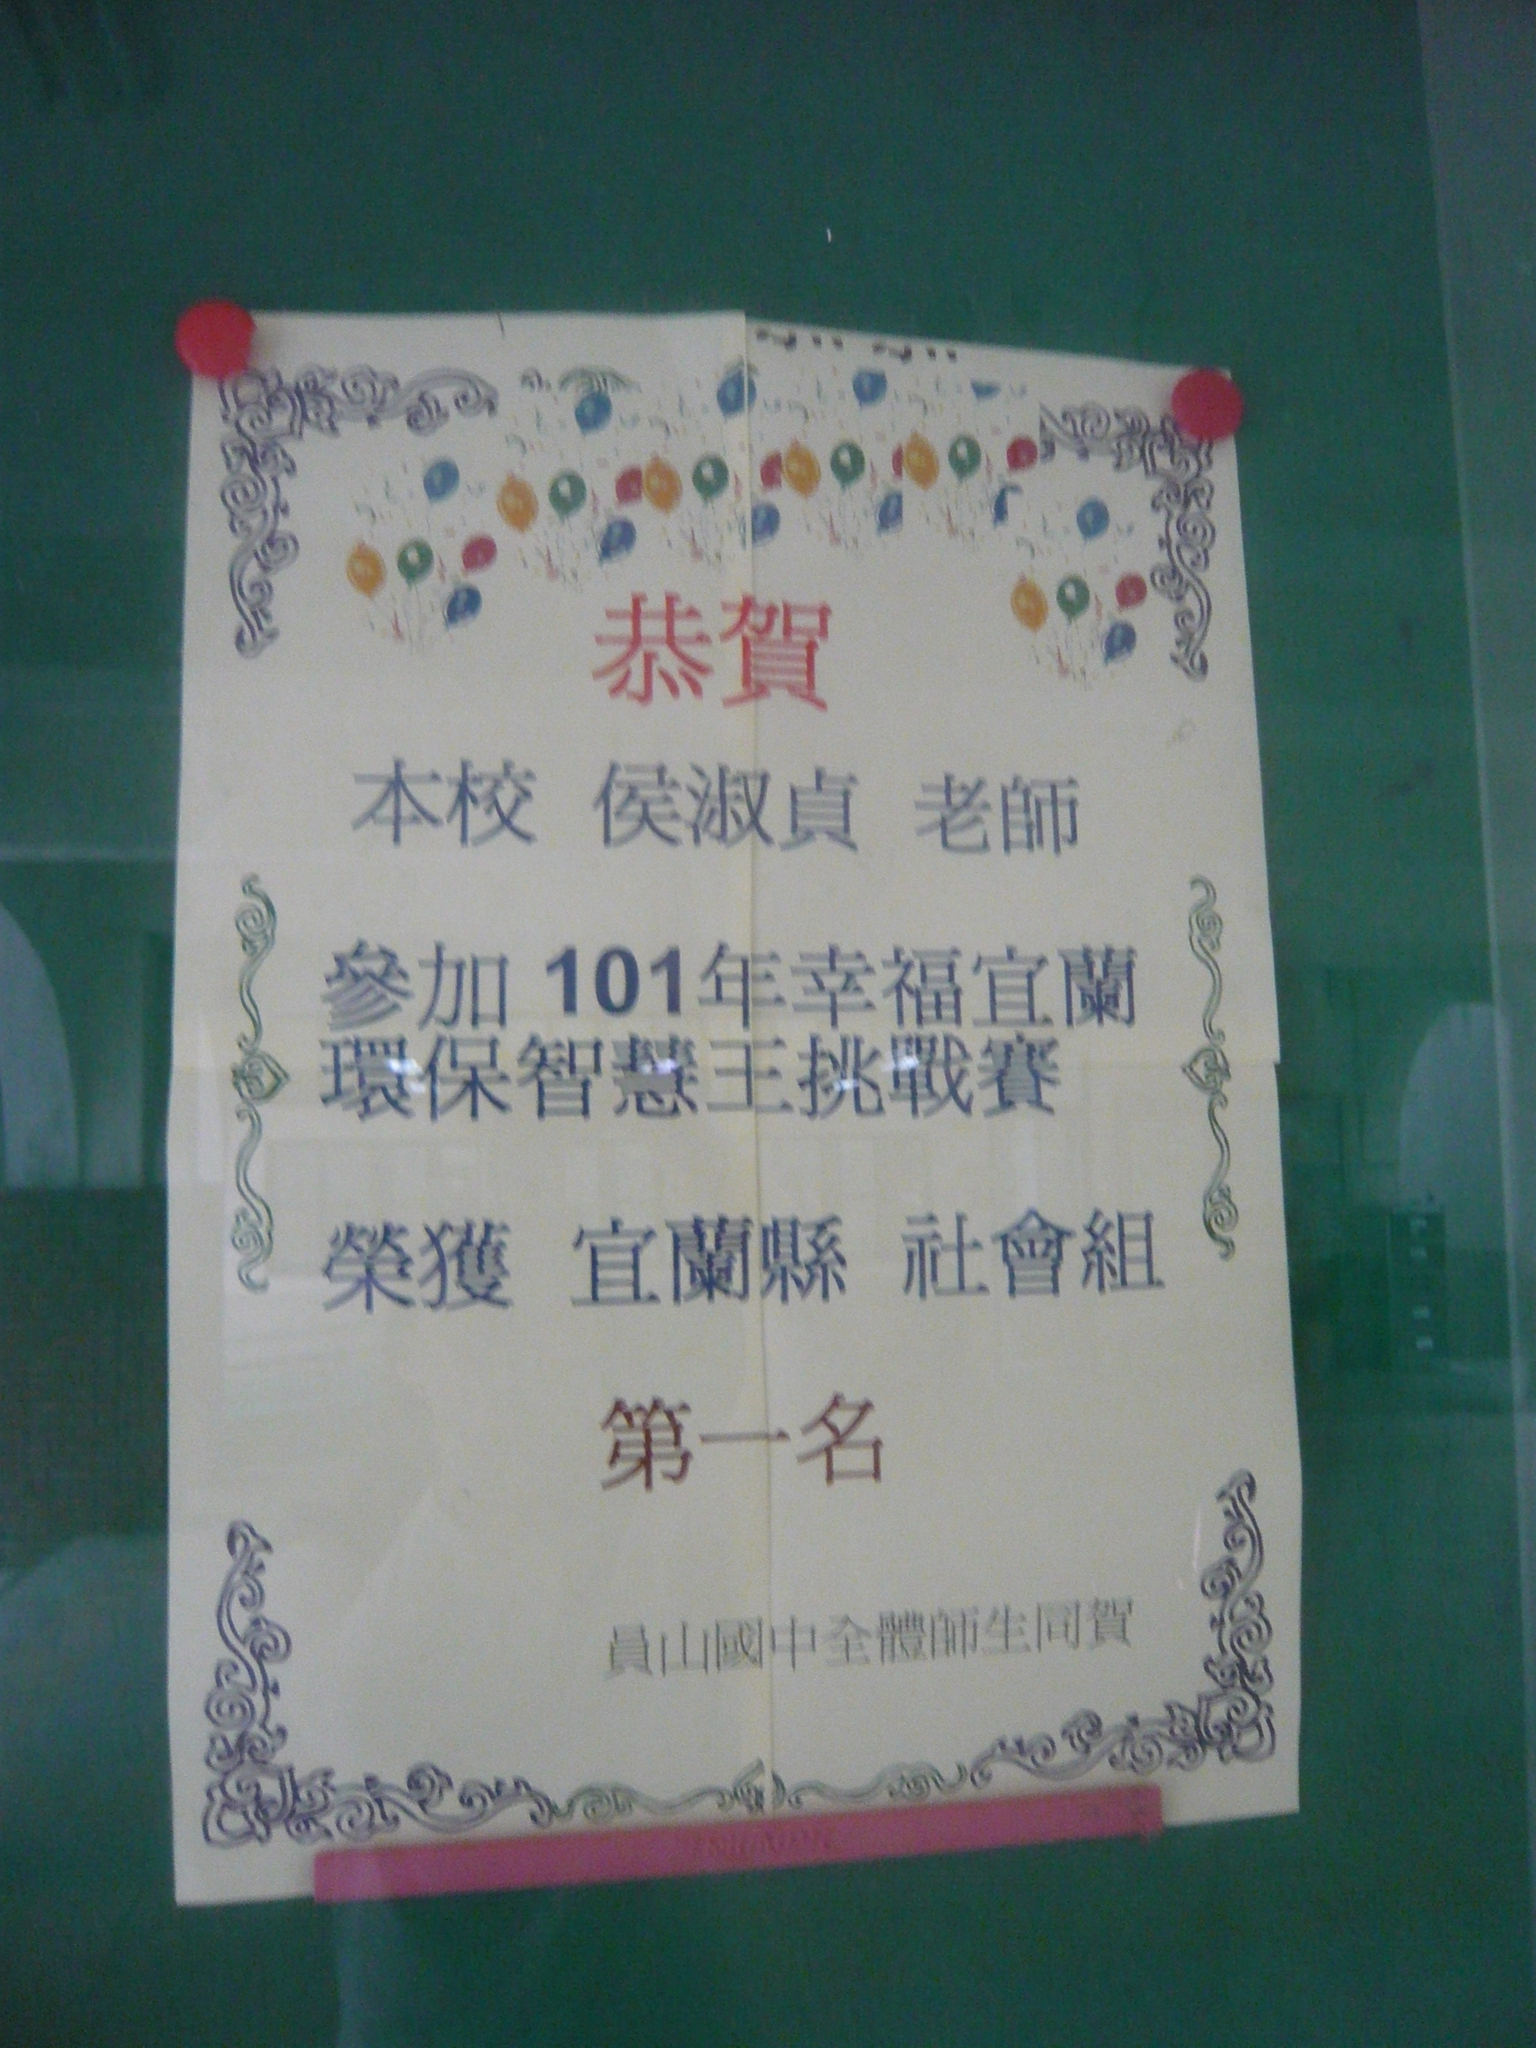 恭賀
本校 侯淑貞 老師
參加 101年幸福宜蘭
環保智慧王挑戰賽
榮獲 宜蘭縣 社會組
第一名
員山國中全體師生同賀